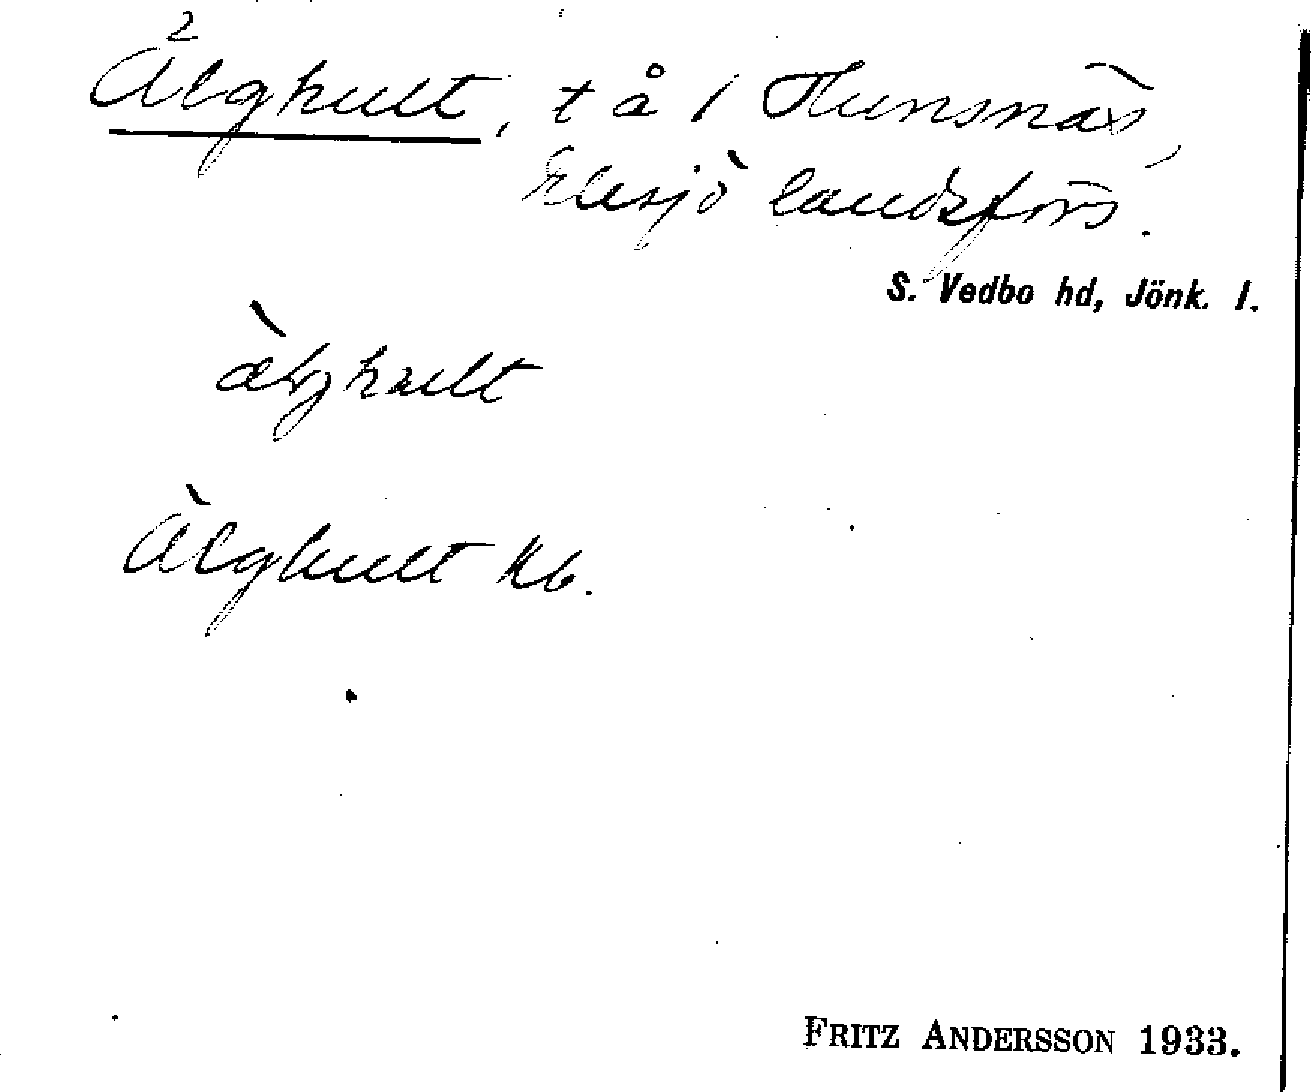 2
Älghult, t å 1 Hunsnäs,
Eksjö landsförs.
S. Vedbo hd, Jönk. l.
àlghult
Älghult kb.
FRITZ ANDERSSON 1933.